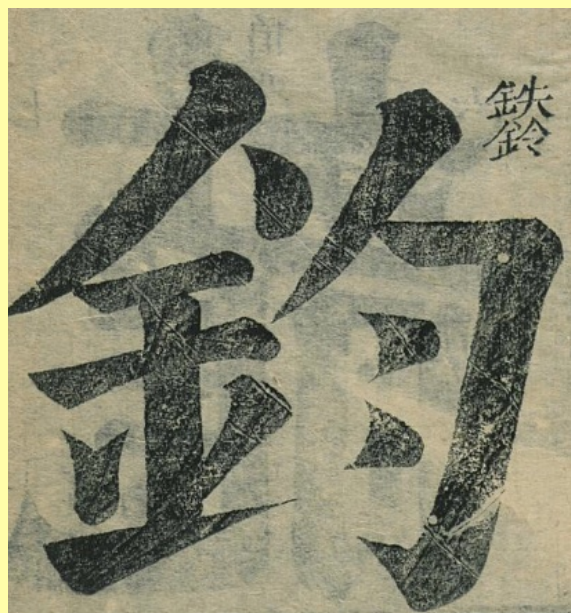 鉄鈴
鈞